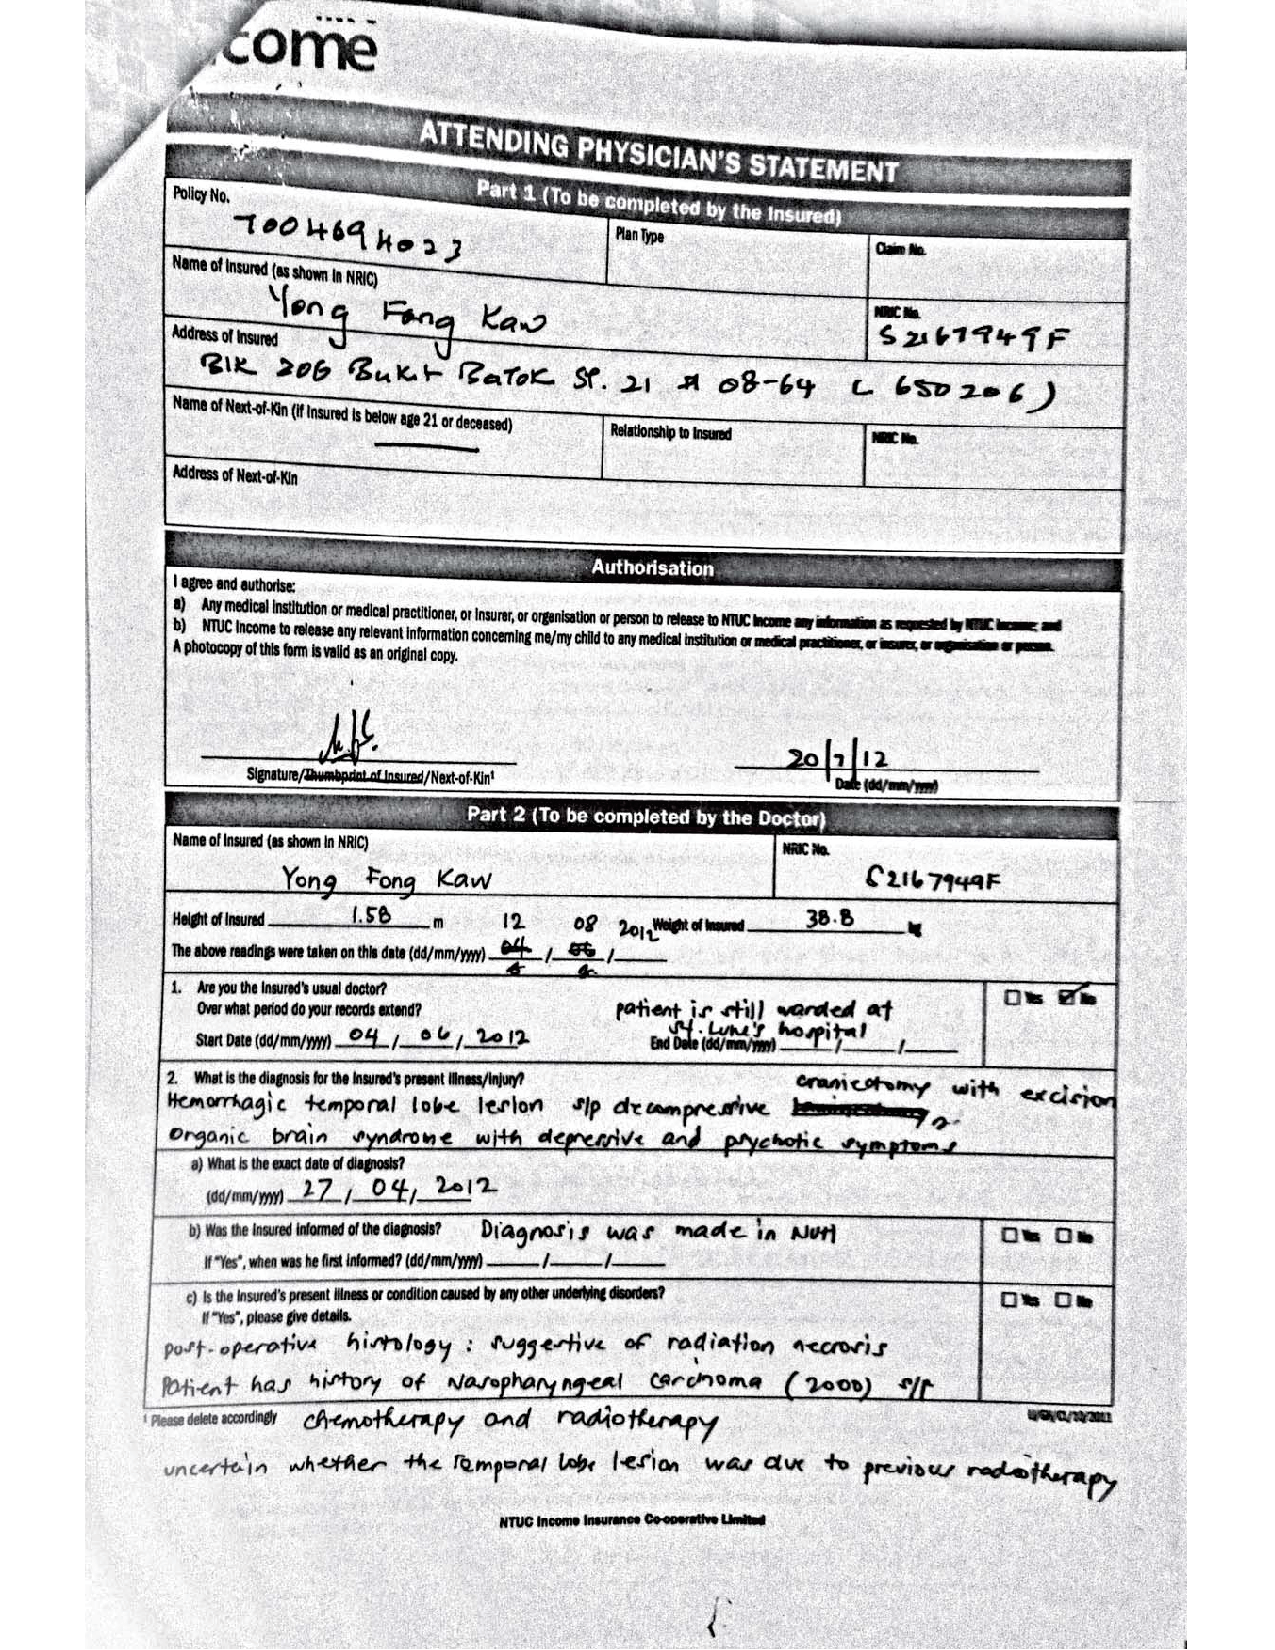 come
ATTENDING PHYSICIAN'S STATEMENT
Part 1 (To be completed by the Insured)
Policy No. 7004694023
Plan Type
Claim No.
Name of Insured (as shown in NRIC)
Yong Fong Kaw
NRIC No.
S2167949F
Address of Insured
Blk 206 Bukit Batok St. 21 # 08-64 ( 650206 )
Name of Next-of-Kin (If Insured is below age 21 or deceased)
Relationship to Insured
NRIC No.
Address of Next-of-Kin
Authorisation
I agree and authorise:
a) Any medical institution or medical practitioner, or insurer, or organisation or person to release to NTUC Income any information as requested by NTUC Income; and
b) NTUC Income to release any relevant information concerning me/my child to any medical institution or medical practitioner, or insurer, or organisation or person.
A photocopy of this form is valid as an original copy.
20/7/12
Signature/Thumbprint of Insured/Next-of-Kin¹
Date (dd/mm/yyyy)
Part 2 (To be completed by the Doctor)
Name of Insured (as shown in NRIC)
NRIC No.
Yong Fong Kaw
S2167949F
Height of Insured 1.58 m
12 08 2012
Weight of Insured 38.8 kg
The above readings were taken on this date (dd/mm/yyyy) 04 / 06 /
1. Are you the Insured's usual doctor?
Yes No
Over what period do your records extend?
patient is still warded at
St. Luke's hospital
Start Date (dd/mm/yyyy) 04 / 06 / 2012
End Date (dd/mm/yyyy) / /
2. What is the diagnosis for the Insured's present illness/injury?
craniectomy with excision
Hemorrhagic temporal lobe lesion s/p decompressive
Organic brain syndrome with depressive and psychotic symptoms
a) What is the exact date of diagnosis?
(dd/mm/yyyy) 27 / 04 / 2012
b) Was the Insured informed of the diagnosis? Diagnosis was made in NUH
Yes No
If "Yes", when was he first informed? (dd/mm/yyyy) / /
c) Is the Insured's present illness or condition caused by any other underlying disorders?
Yes No
If "Yes", please give details.
post-operative histology : suggestive of radiation necrosis
Patient has history of Nasopharyngeal carcinoma (2000) s/p
¹ Please delete accordingly
chemotherapy and radiotherapy
uncertain whether the temporal lobe lesion was due to previous radiotherapy
NTUC Income Insurance Co-operative Limited